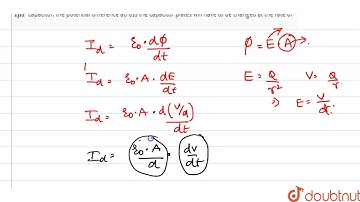 1μF capacitor, the potential difference across the capacitor plates will have to be changed at the rate of
I_d = ε₀·dφ/dt
φ = E(A)
I_d = ε₀·A·dE/dt
E = Q/r² V = Q/r
I_d = ε₀·A·d(V/d)/dt
⇒ E = V/d.
I_d = ε₀·A/d · dv/dt
doubtnut